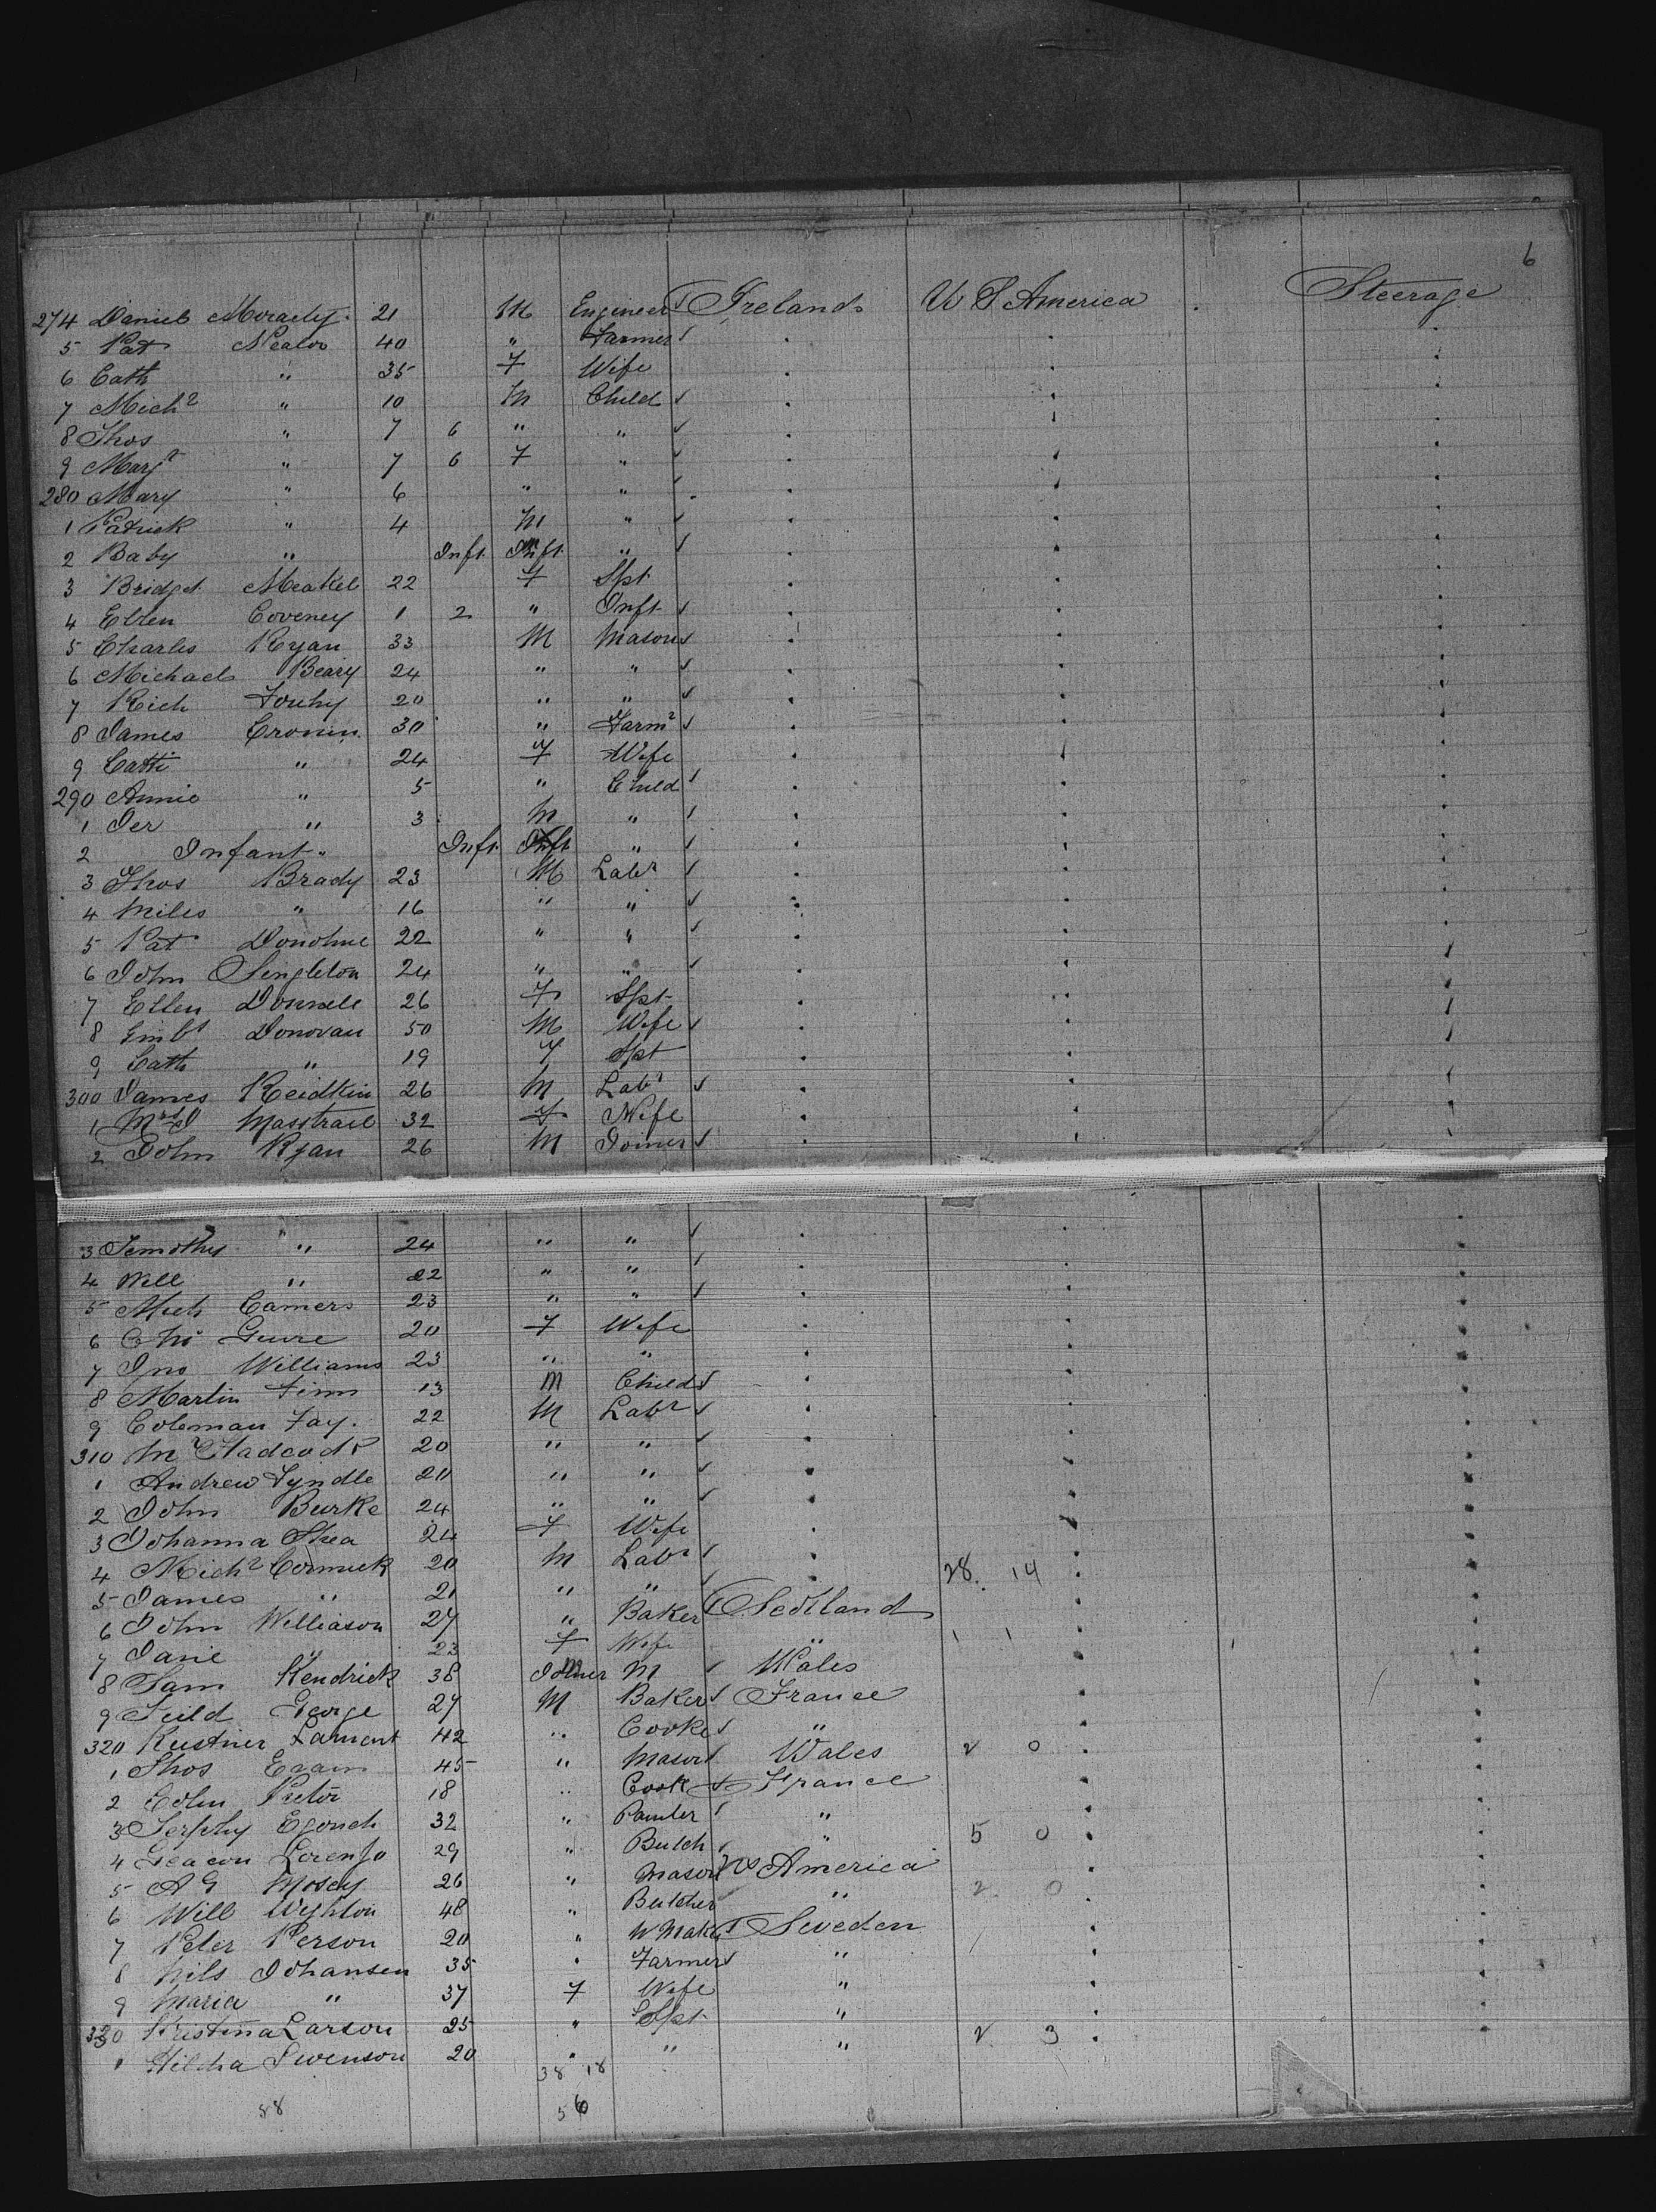 6
274 Daniel 21 M Engineer Ireland U S America Steerage
5 Pat 40 " Farmer
6 Cath " 35 F Wife
7 Michl " 10 M Child
8 Thos " 7 6 " "
9 Margt " 7 6 F "
280 Mary " 6 " "
1 Patrick " 4 M "
2 Baby " Inft Inft "
3 Bridget Meakel 22 F Spt
4 Ellen Coveney 1 2 " Inft
5 Charles Ryan 33 M Mason
6 Michael Beary 24 " "
7 Rich Touhy 20 " "
8 James Cronin 30 " Farmr
9 Cath " 24 F Wife
290 Annie " 5 " Child
1 Jer " 3 M "
2 Infant " Inft Inft "
3 Thos Brady 23 M Labr
4 Miles " 16 " "
5 Pat Donohue 22 " "
6 John Singleton 24 " "
7 Ellen 26 F Spt
8 Donovan 50 M Wife
9 Cath " 19 F Spt
300 James 26 M Labr
1 Mrs 32 F Wife
2 John Ryan 26 M Joiner
3 Timothy " 24 " "
4 Will " 22 " "
5 Mich 23 " "
6 20 F Wife
7 Jno Williams 23 " "
8 Martin Finn 13 M Child
9 Coleman Fay 22 M Labr
310 20 " "
1 Andrew Lyndle 20 " "
2 John Burke 24 " "
3 Johanna Shea 24 F Wife
4 Michl Cormick 20 M Labr
5 James " 21 " " 28 14
6 John Williason 27 " Baker Scotland
7 Jane " 23 F Wife " 1 1
8 Sam Kendrick 38 Joiner M M Wales
9 George 27 M Baker France
320 Lament 42 " Cooke "
1 Thos 45 " Mason Wales 2 0
2 18 " Cook France
3 32 " "
4 Lorenso 29 " Butch " 5 0
5 A G 26 " Mason US America
6 Will Wighton 48 " Butcher " 2 0
7 Peter Person 20 " W Maker Sweden
8 Nils Johansen 35 " Farmer "
9 Maria " 37 F Wife "
330 Kristina Larson 25 " Spt "
1 Hilda Swenson 20 " " " 2 3
38 18
88 56